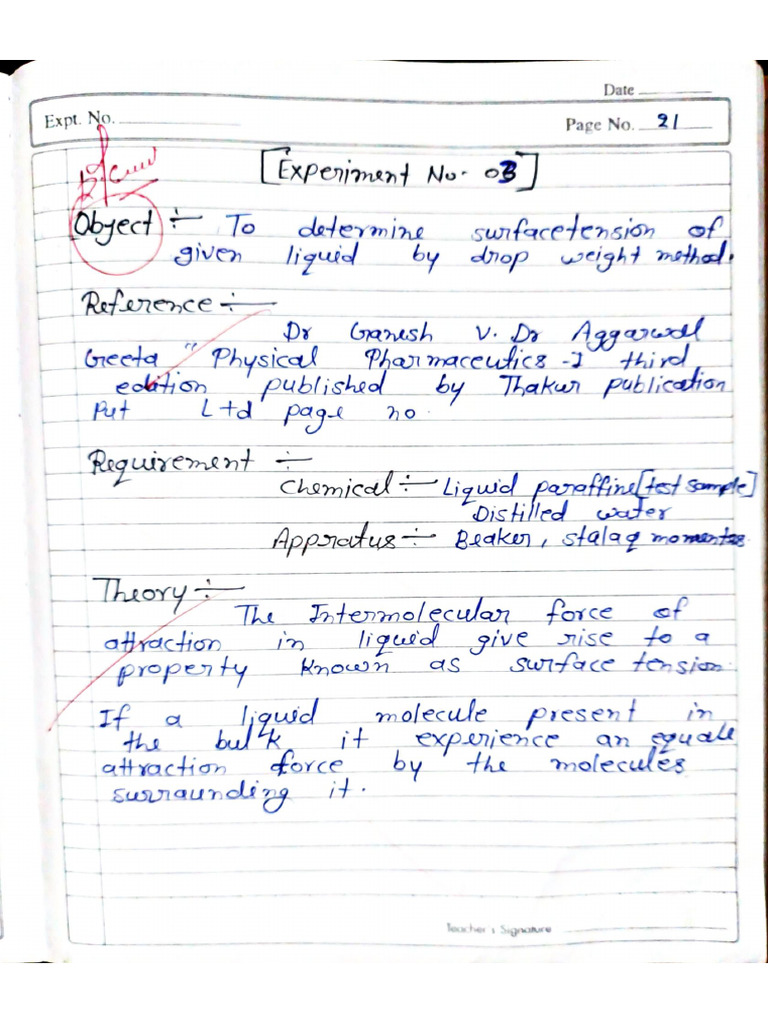 Date
Expt. No.
Page No. 21
[Experiment No. 03]
Object :- To determine surfacetension of
given liquid by drop weight method.
Reference :-
Dr Ganesh V. Dr Aggarwal
Geeta " Physical Pharmaceutics -I third
edition published by Thakur publication
Put Ltd page no.
Requirement :-
Chemical :- Liquid paraffine [test sample]
Distilled water
Appratus :- Beaker, stalaq
Theory :-
The Intermolecular force of
attraction in liquid give rise to a
property known as surface tension.
If a liquid molecule present in
the bulk it experience an equale
attraction force by the molecules
surraunding it.
Teacher's Signature